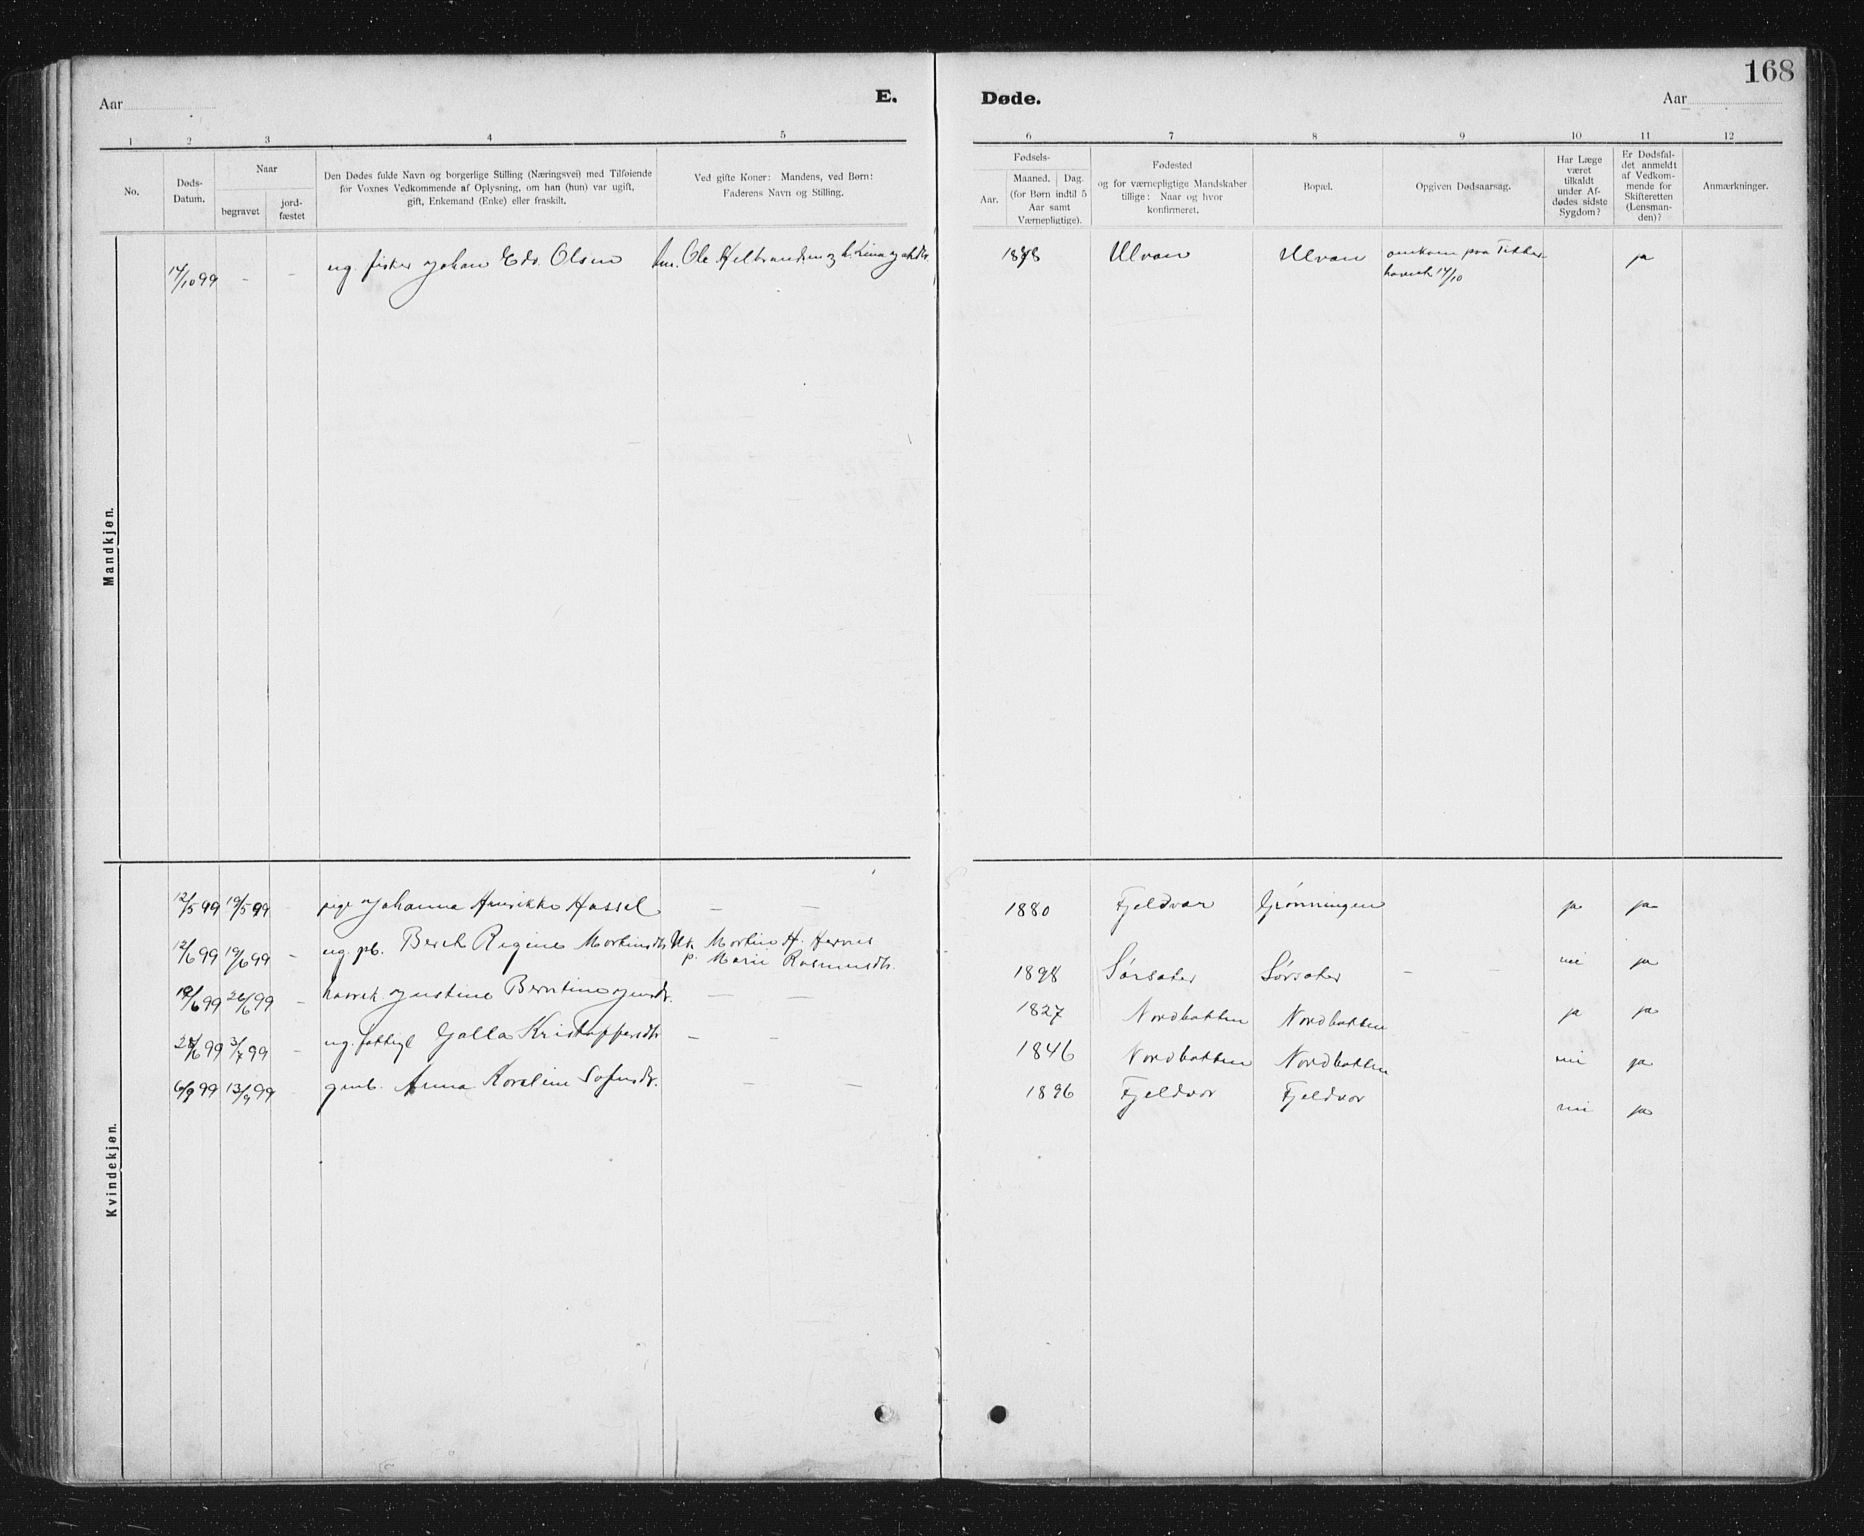 168
Aar
E.
Døde.
Aar
1 2 3 4 5 6 7 8 9 10 11 12
No.
Døds-
Datum.
Naar
begravet
jord-
fæstet
Den Dødes fulde Navn og borgerlige Stilling (Næringsvei) med Tilføiende
for Voxnes Vedkommende af Oplysning, om han (hun) var ugift,
gift, Enkemand (Enke) eller fraskilt.
Ved gifte Koner: Mandens, ved Børn:
Faderens Navn og Stilling.
Fødsels-
Aar.
Maaned. Dag.
(for Børn indtil 5
Aar samt
Værnepligtige).
Fødested
og for værnepligtige Mandskaber
tillige: Naar og hvor
konfirmeret.
Bopæl.
Opgiven Dødsaarsag.
Har Læge
været
tilkaldt
under Af-
dødes sidste
Sygdom?
Er Dødsfal-
det anmeldt
af Vedkom-
mende for
Skifteretten
(Lensman-
den)?
Anmærkninger.
Mandkjøn.
17/10 99 - - ug. fisker Johan Edv. Olsen Ole 1878 Ulvan Ulvan omkom paa
17/10 ja
Kvindekjøn.
12/5 99 19/5 99 - pige Johanna Hassel — — 1880 Fjeldvær Grønningen ja ja
12/6 99 19/6 99 - ug. pb. Beret Regine Martinsdtr. Martin H.
Marie Rasmusdtr. 1898 Sørsæter Sørsæter - - nei ja
/6 99 26/6 99 - Justine Berntine — — 1827 Nordbotten Nordbotten - ja ja
/6 99 3/7 99 - ug. Kristoffersdtr. - - 1846 Nordbotten Nordbotten nei ja
6/9 99 13/9 99 Anna Karoline — — 1896 Fjeldvær Fjeldvær nei ja